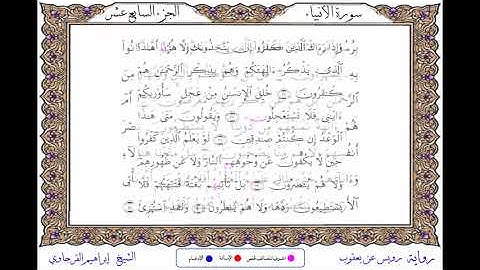 سورة الأنبياء
الجزء السابع عشر
وإذا رءاك الذين كفروا إن يتخذونك إلا هزؤا أهذا
الذي يذكر ءالهتكم وهم بذكر الرحمن هم
كفرون خلق الإنسن من عجل سأوريكم
ءايتي فلا تستعجلون ويقولون متى هذا
الوعد إن كنتم صدقين لو يعلم الذين كفروا
حين لا يكفون عن وجوههم النار ولا عن ظهورهم
ولا هم ينصرون بل تأتيهم بغتة فتبهتهم فلا
يستطيعون ردها ولا هم ينظرون ولقد استهزئ
رواية رويس عن يعقوب
الإمالة
الإدغام
الشيخ إبراهيم الفرجاوي